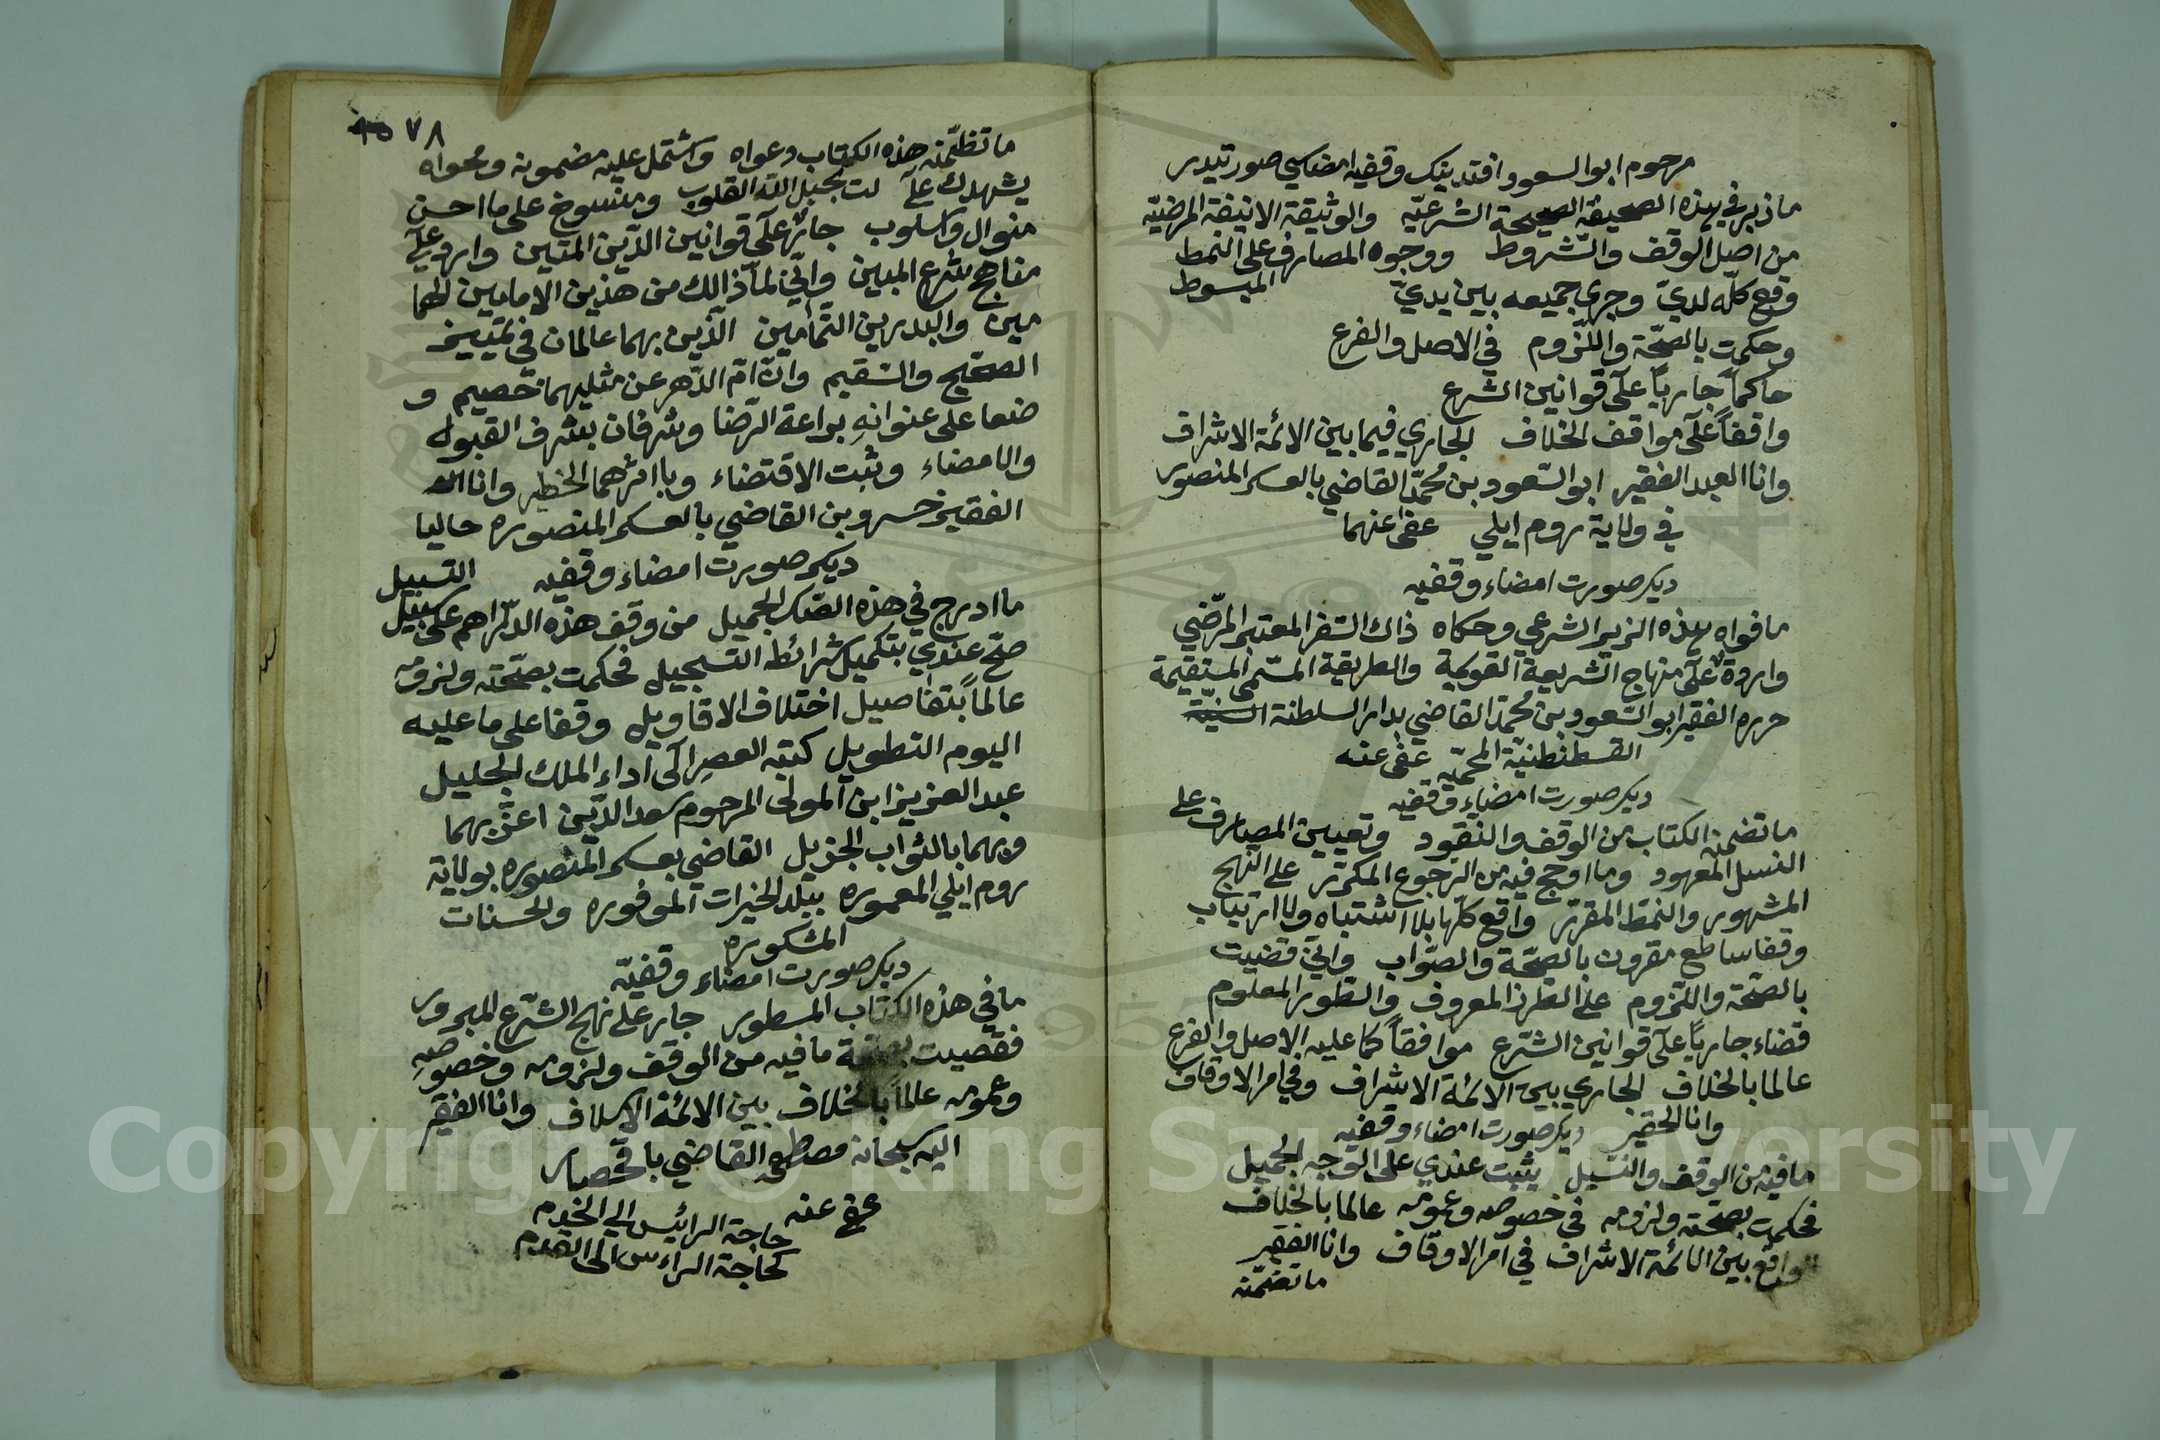 مرحوم ابو السعود افندينك وقفيه امضاسي صورتيدر
ما زبر في هذه الصحيفة الصحيحة الشرعيّه والوثيقة الانيقة المرضيّه
من اصل الوقف والشّروط ووجوه المصارف على النمط
المبسوط
وقع كلّه لديّ وجري جميعه بين يديّ
وحكمت بالصحّة واللّزوم في الاصل والفرع
حاكماً جارياً علي قوانين الشرع
واقفاً علي مواقف الخلاف الجاري فيما بين الائمة الاشراف
وانا العبد الفقير ابو السّعود بن محمّد القاضي بالعسكر المنصور
في ولاية روم ايلي عفى عنهما
ديكر صورت امضاء وقفيه
ما فواه هذه الزبر الشرعي وحكاه ذاك السّفر المعتبر المرّضي
واردة علي منهاج الشريعة القويمة والطريقة المستقيمة
حرره الفقير ابو السّعود بن محمّد القاضي بدار السلطنة السنيّة
القسطنطنيّة المحميّه عفى عنه
ديكر صورت امضاء وقفيه
ما تضمنه الكتاب من الوقف والنقود وتعيين المصارف على
النسل المعهود وما اوجح فيه من الرّجوع المكرّر على النّهج
المشهور والنمط المقرّر واقع كلّها بلا اشتباه ولا ارتياب
وقفا ساطع مقرون بالصحّة والصّواب وانّي قضيت
بالصحّة واللّزوم على الطرز المعروف والطور المعلوم
قضاء جارياً علي قوانين الشرّع موافقاً كما عليه الاصل والفرع
عالما بالخلاف الجاري بين الائمة الاشراف وفي امر الاوقاف
وانا الحقير ديكر صورت امضاء وقفيه
ما فيه من الوقف والتسبيل يثبت عندي على الوجه الجميل
فحكمت بصحّته ولزومه في خصوصه وعمومه عالما بالخلاف
الواقع بين الائمة الاشراف في امر الاوقاف وانا الفقير
ما تضمّنه
٧٨
ما تظلّمنه هذه الكتاب دعواه واشتمل عليه مضمونه ومحواه
يشهدك على بجبل الله القلوب ومنسوخ على ما احسن
منوال واسلوب جائر علي قوانين الدّين المتين وارد علي
مناهج شرع المبين وانّي لما ذالك من هذين الامامين
والبدرين التّمامين الّذين بهما عالمان في تمييز
الصحّيح والسّقيم وانّ امّ الدّهر عن مثليهما عصيم و
ضعا على عنوانهِ براعة الرّضا وشرفان بشرف القبول
والامضاء وثبت الاقتضاء وبا امرهما الخطير وانا
الفقير خسرو بن القاضي بالعسكر المنصوره حاليا
ديكر صورت امضاء وقفيه
ما ادرج في هذه الصّك الجميل من وقف هذه الدّراهم على سبيل التسبيل
صحّ عندي بتكميل شرائط التسجيل فحكمت بصحّته ولزومه
عالماً بتفاصيل اختلاف الاقاويل وقفا على ما عليه
اليوم التطويل كتبه العصر الى اداء الملك الجليل
عبد العزيز ابن المولى المرحوم سعد الدّين
بالثواب الجزيل القاضي بعسكر المنصوره بولاية
روم ايلي المعموره الخيرات الموفوره والحسنات
المشكوره
ديكر صورت امضاء وقفيّه
ما في هذه الكتاب المسطور جار على نهج الشّرع المبرور
فقضيت بصحّة ما فيه من الوقف ولزومه وخصوصه
وعمومه عالماً بالخلاف بين الائمة الاسلاف وانا الفقير
اليه سبحانه مصطفى القاضي باقحصار
عفي عنه حاجة الرائيس الي الخدم
كحاجة الراءس الى القدم
Copyright © King Saud University